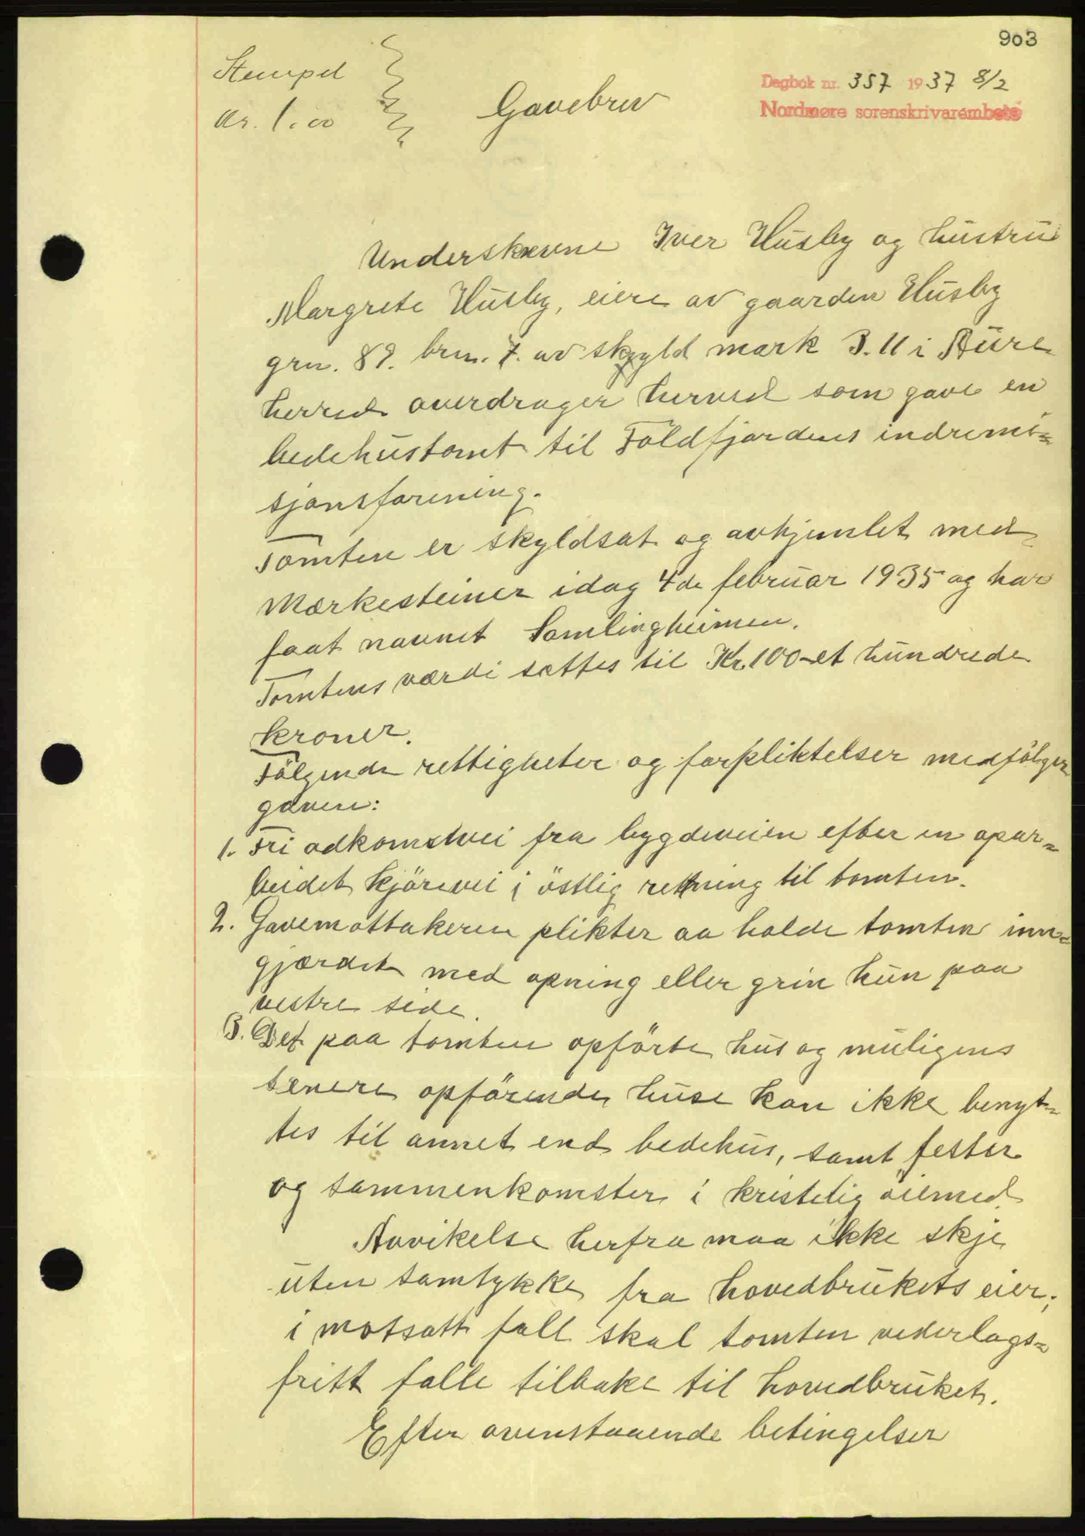 903
Stempel
Kr. 1.00
Gavebrev
Dagbok nr. 357 1937 8/2
Nordmøre sorenskrivarembete
Underskrevne Iver Husby og hustru
Margrete Husby, eiere av gaarden Husby
grn. 89. brn. 7. av skyld mark 3.11 i Aure
herred overdrager herved som gave en
bedehustomt til Foldfjordens indremi=
sjonsforening.
Tomten er skyldsat og avhjemlet med
Mærkesteiner idag 4de februar 1935 og har
faat navnet Samlingheimen.
Tomtens værdi sættes til Kr. 100 et hundrede
kroner.
Følgende rettigheter og forpliktelser medfølger
gaven:
1. Fri adkomstvei fra bygdeveien efter en opar=
beidet kjörevei i östlig retning til tomten.
2. Gavemottakeren plikter aa holde tomten inn=
gjærdet med opning eller grin kun paa
vestre side.
3. Det paa tomten opförte hus og muligens
senere opförende huse kan ikke benyt=
tes til annet end bedehus, samt fester
og sammenkomster i kristelig öiemed.
Avvikelse herfra maa ikke skje
uten samtykke fra hovedbrukets eier;
i motsatt fall skal tomten vederlags=
fritt falle tilbake til hovedbruket.
Efter ovenstaaende betingelser